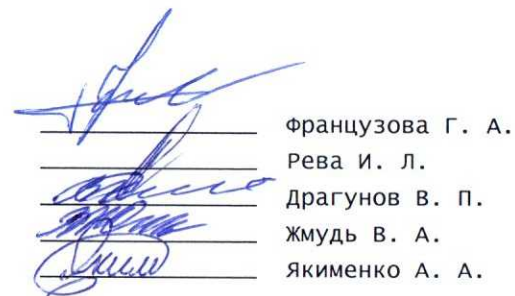 Французова Г. А.
Рева И. Л.
Драгунов В. П.
Жмудь В. А.
Якименко А. А.